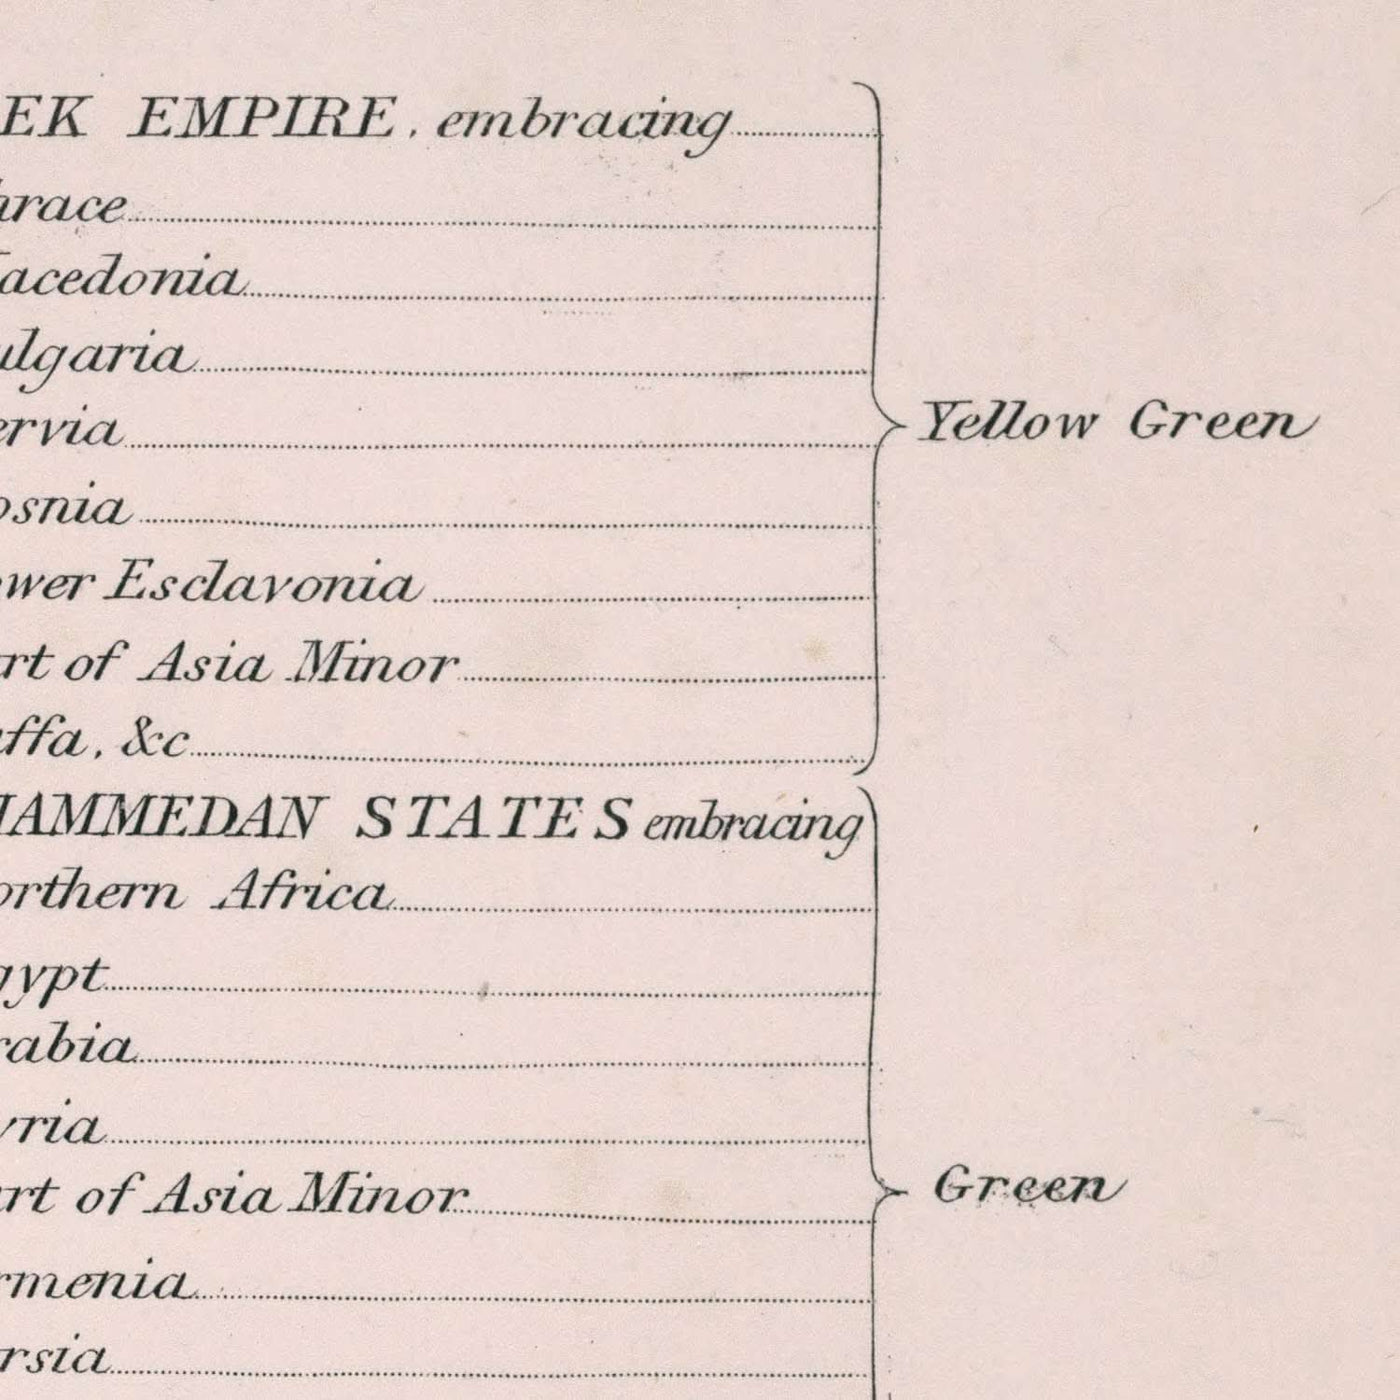 EK EMPIRE, embracing
hrace
acedonia
ulgaria
ervia
Yellow Green
osnia
ower Esclavonia
art of Asia Minor
affa, &c
HAMMEDAN STATES embracing
orthern Africa
gypt
rabia
yria
art of Asia Minor
Green
rmenia
rsia